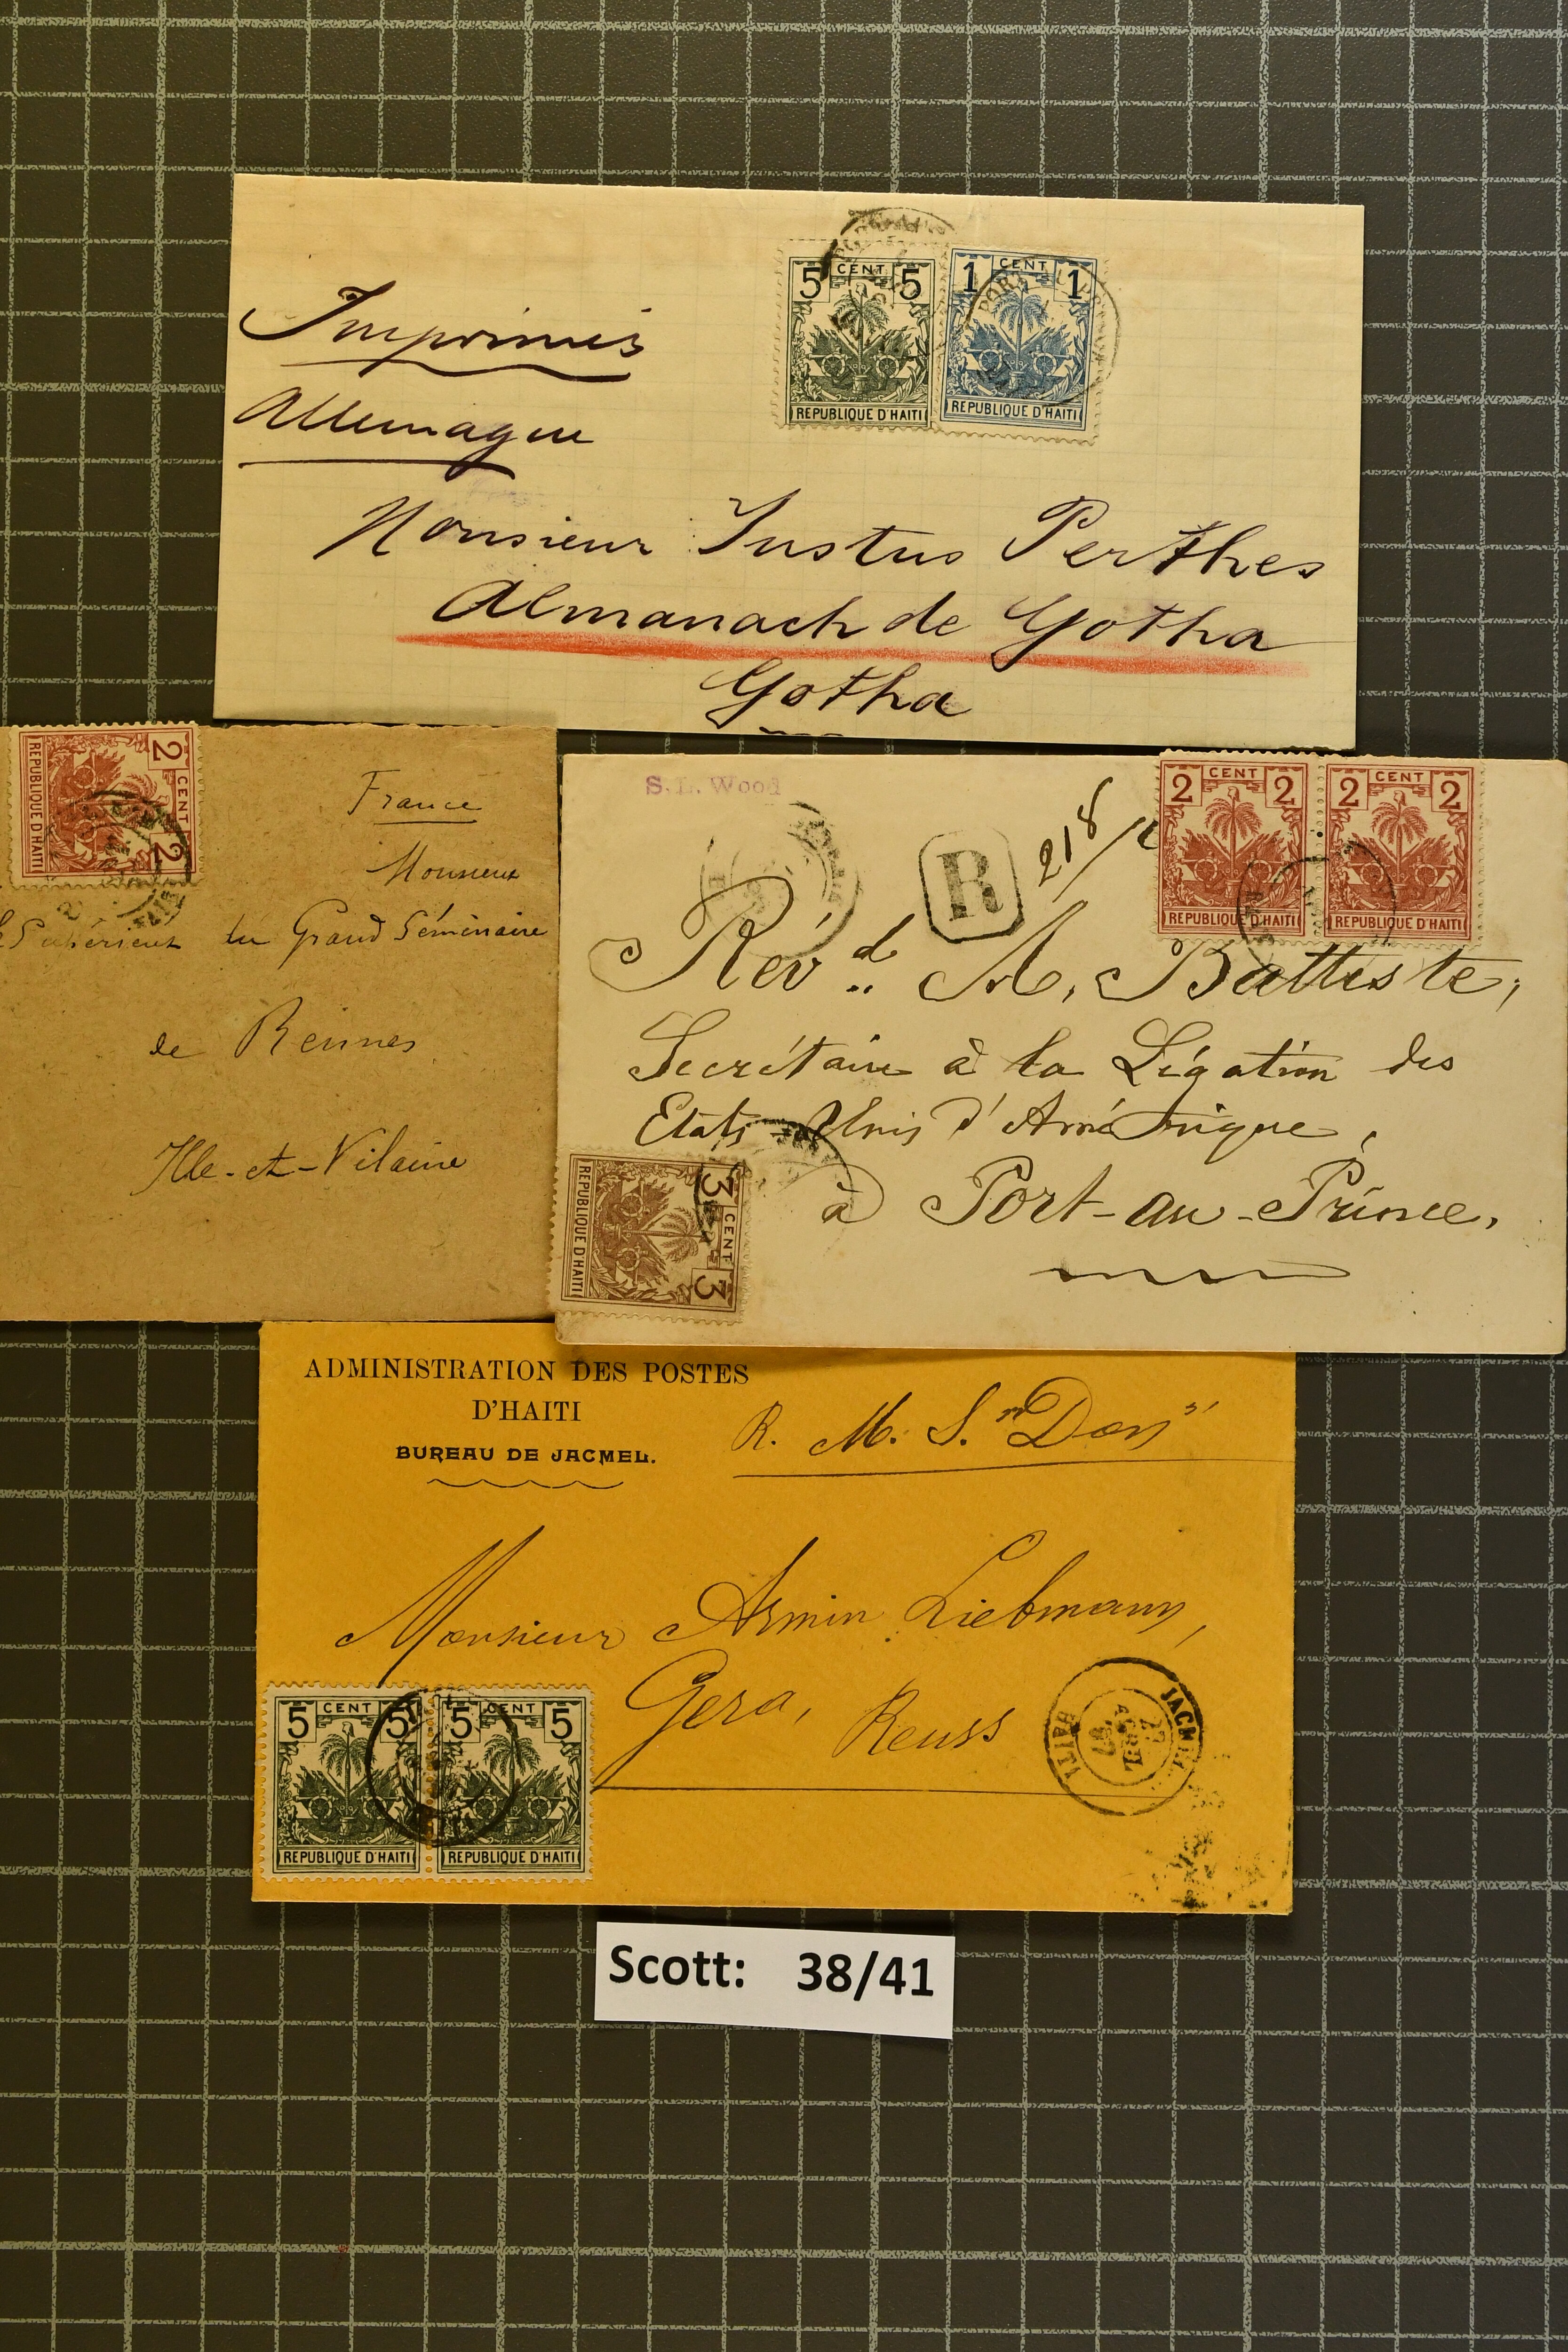 5 CENT 5
REPUBLIQUE D'HAITI
1 CENT 1
PORT
REPUBLIQUE D'HAITI
Imprimés
Allemagne
Monsieur Justus Perthes
Almanach de Gotha
Gotha
2 CENT 2
REPUBLIQUE D'HAITI
France
Monsieur
Supérieur du Grand Séminaire
de Rennes
Ille-et-Vilaine
S. L. Wood
R
218
2 CENT 2
REPUBLIQUE D'HAITI
2 CENT 2
REPUBLIQUE D'HAITI
Révd. A. Battiste,
Secrétaire à la Légation des
Etats-Unis d'Amérique,
à Port-au-Prince.
3 CENT 3
REPUBLIQUE D'HAITI
ADMINISTRATION DES POSTES
D'HAITI
BUREAU DE JACMEL.
R. M. S. "Don"
Monsieur Armin Liebmann,
Gera, Reuss
5 CENT 5
REPUBLIQUE D'HAITI
5 CENT 5
REPUBLIQUE D'HAITI
JACMEL
HAITI
Scott: 38/41